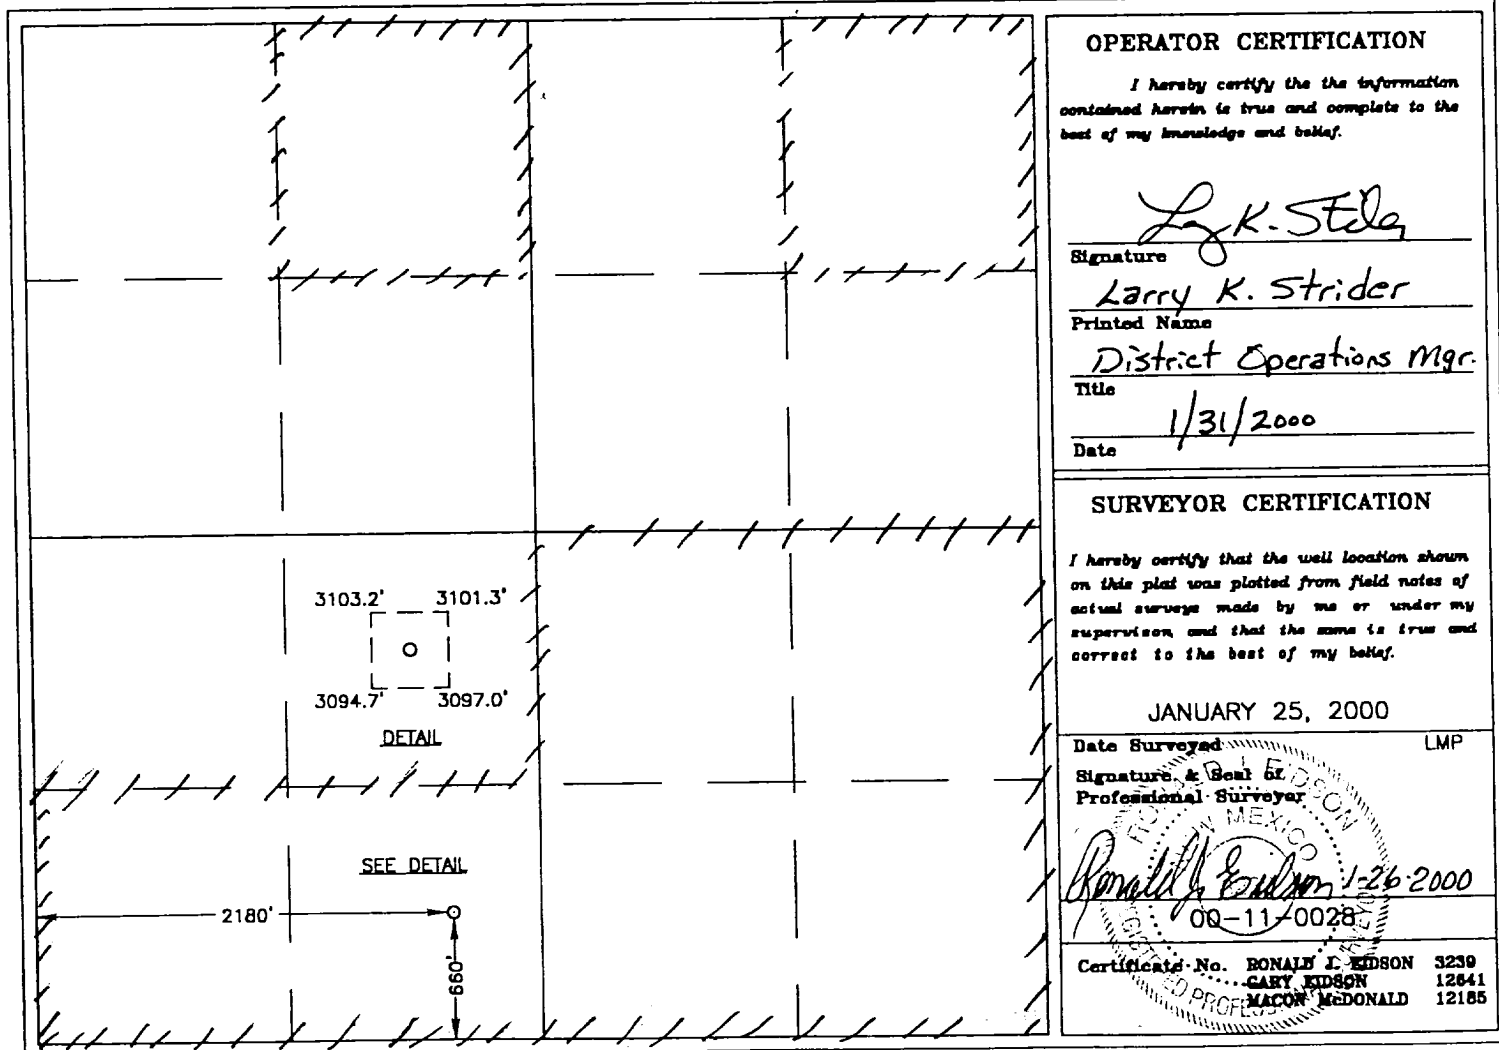 3103.2' 3101.3'
3094.7' 3097.0'
DETAIL
SEE DETAIL
2180'
660'
OPERATOR CERTIFICATION
I hereby certify the the information
contained herein is true and complete to the
best of my knowledge and belief.
Larry K. Strider
Signature
Larry K. Strider
Printed Name
District Operations Mgr.
Title
1/31/2000
Date
SURVEYOR CERTIFICATION
I hereby certify that the well location shown
on this plat was plotted from field notes of
actual surveys made by me or under my
supervison, and that the same is true and
correct to the best of my belief.
JANUARY 25, 2000
Date Surveyed LMP
Signature & Seal of
Professional Surveyor
RONALD J. EIDSON
NEW MEXICO
REGISTERED PROFESSIONAL SURVEYOR
Ronald J. Eidson 1-26-2000
00-11-0028
Certificate No. RONALD J. EIDSON 3239
GARY EIDSON 12641
MACON McDONALD 12185